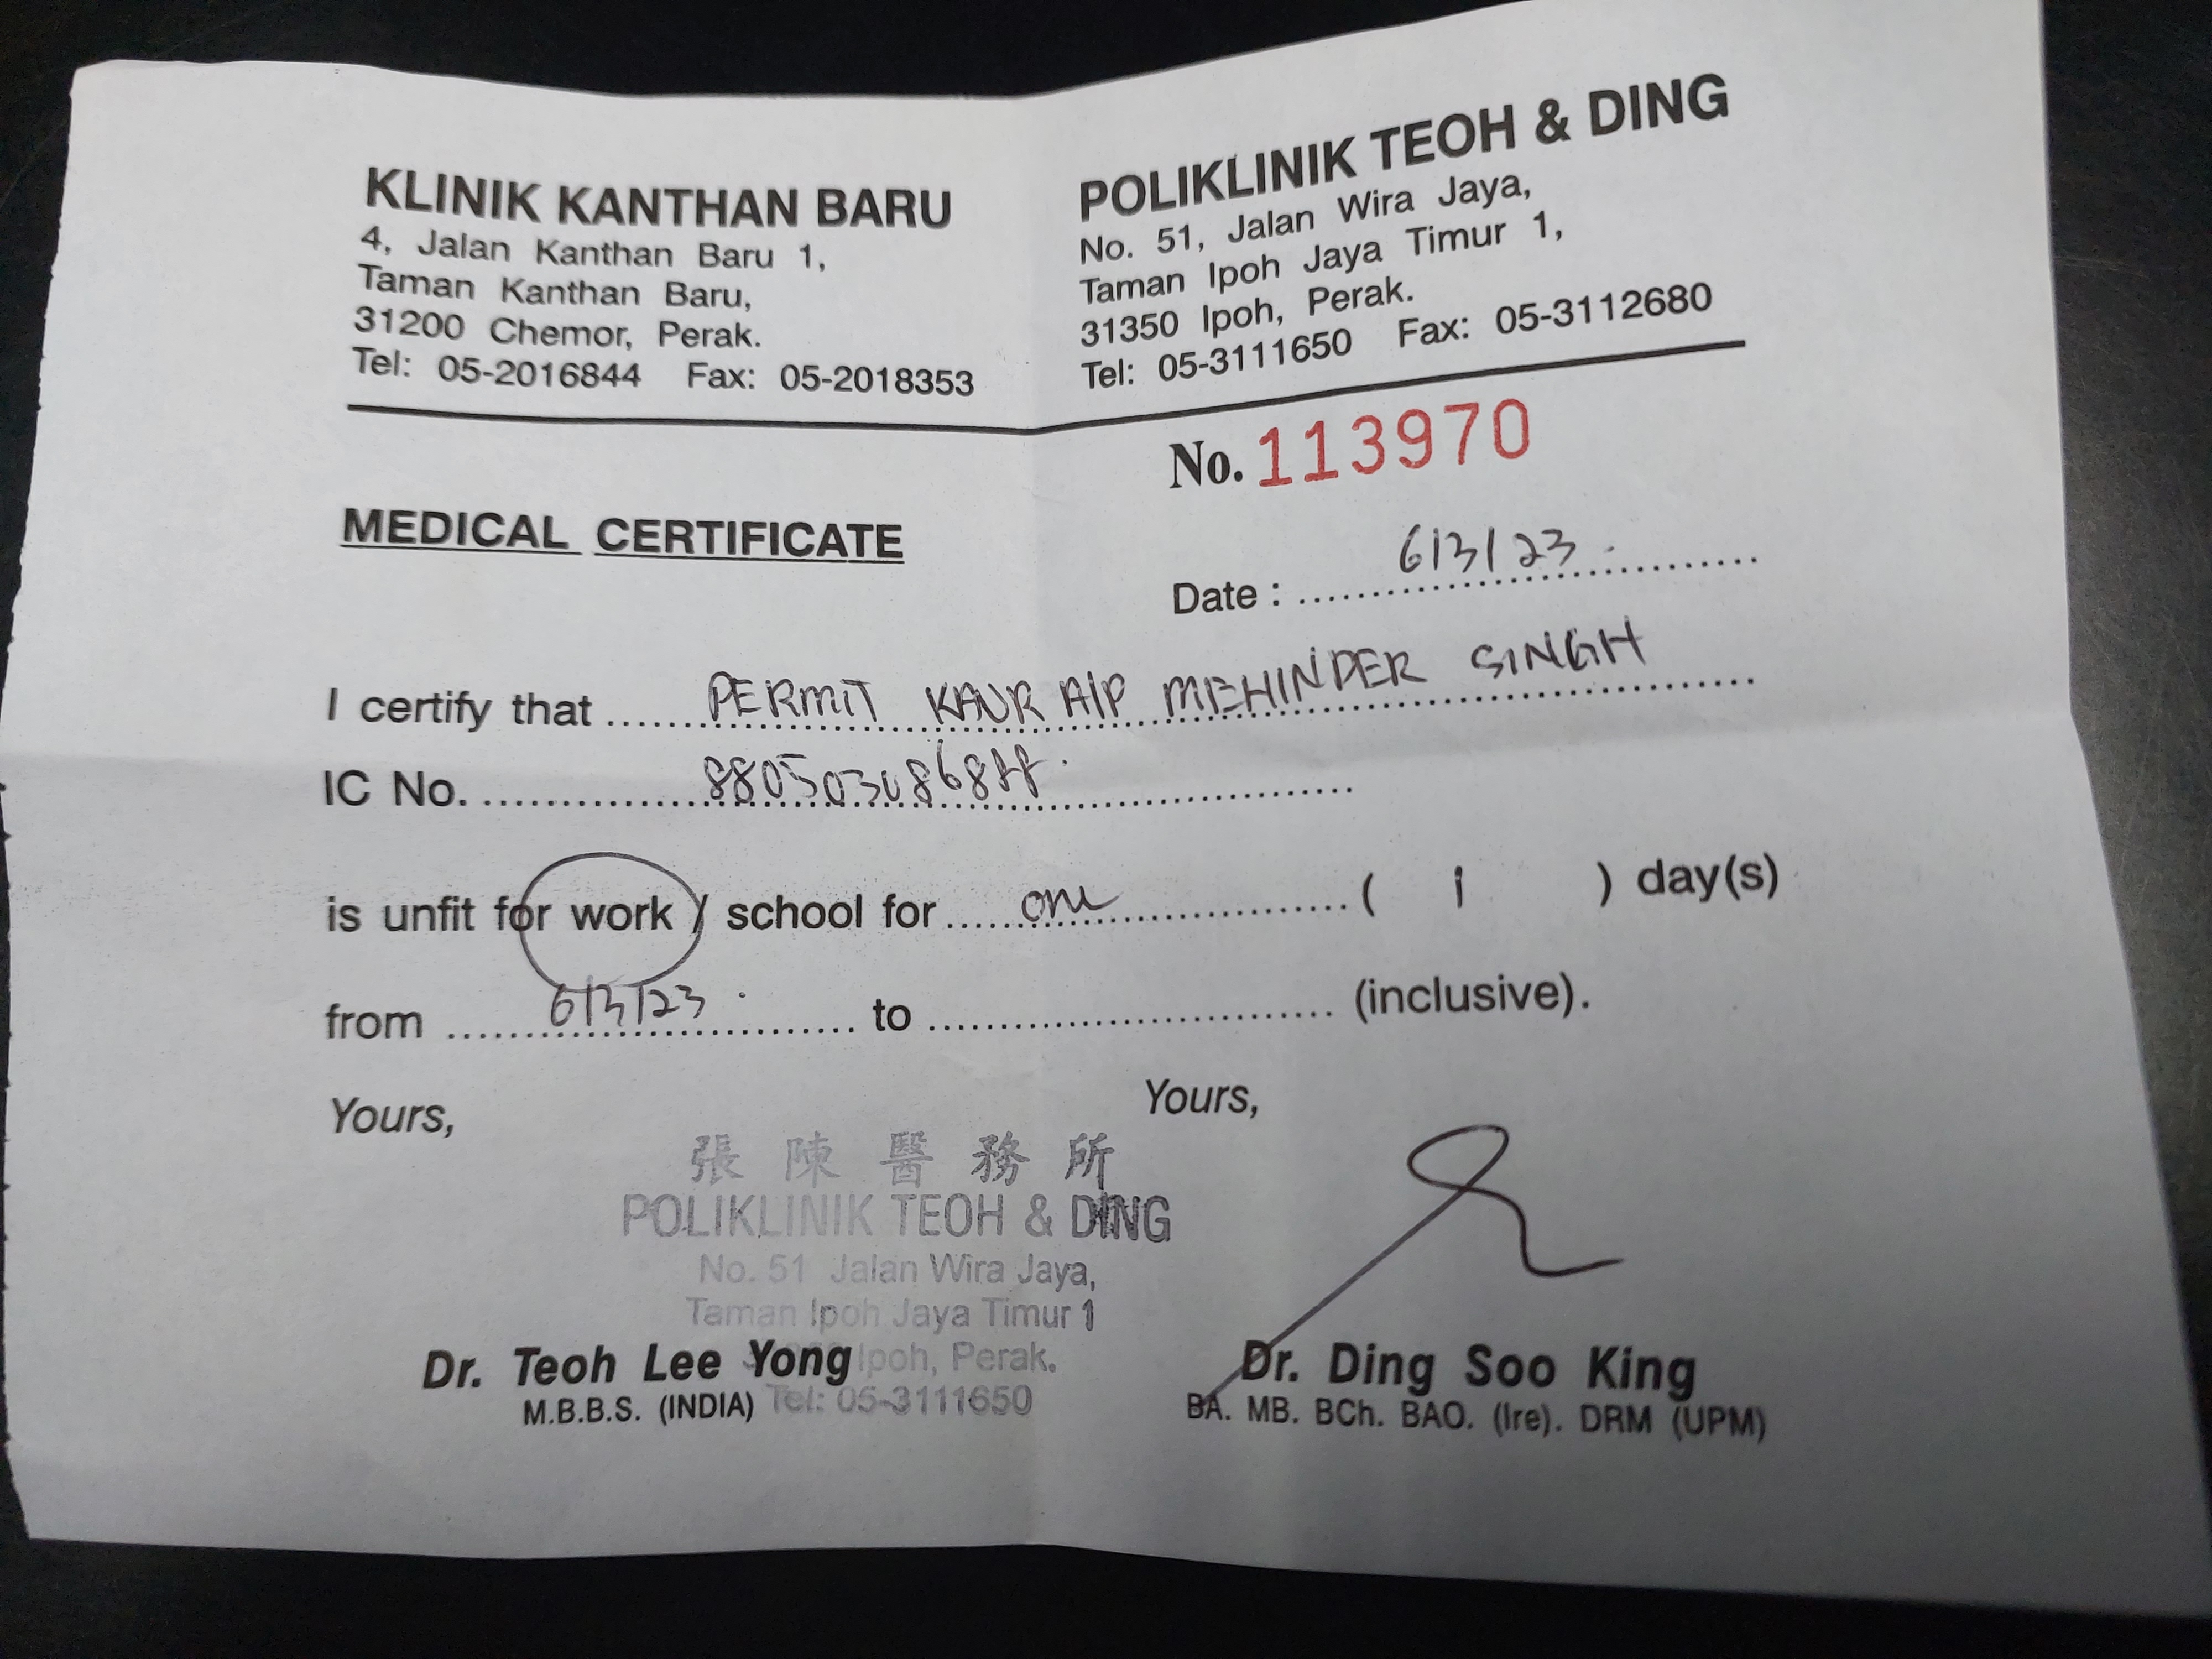 KLINIK KANTHAN BARU
4, Jalan Kanthan Baru 1,
Taman Kanthan Baru,
31200 Chemor, Perak.
Tel: 05-2016844 Fax: 05-2018353
POLIKLINIK TEOH & DING
No. 51, Jalan Wira Jaya,
Taman Ipoh Jaya Timur 1,
31350 Ipoh, Perak.
Tel: 05-3111650 Fax: 05-3112680
No. 113970
MEDICAL CERTIFICATE
Date : 6/3/23
I certify that PERMIT KAUR A/P MEHINDER SINGH
IC No.
is unfit for work / school for one ( 1 ) day(s)
from 6/3/23 to (inclusive).
Yours,
張陳醫務所
POLIKLINIK TEOH & DING
No. 51 Jalan Wira Jaya,
Taman Ipoh Jaya Timur 1
Ipoh, Perak.
Tel: 05-3111650
Dr. Teoh Lee Yong
M.B.B.S. (INDIA)
Yours,
Dr. Ding Soo King
BA. MB. BCh. BAO. (Ire). DRM (UPM)